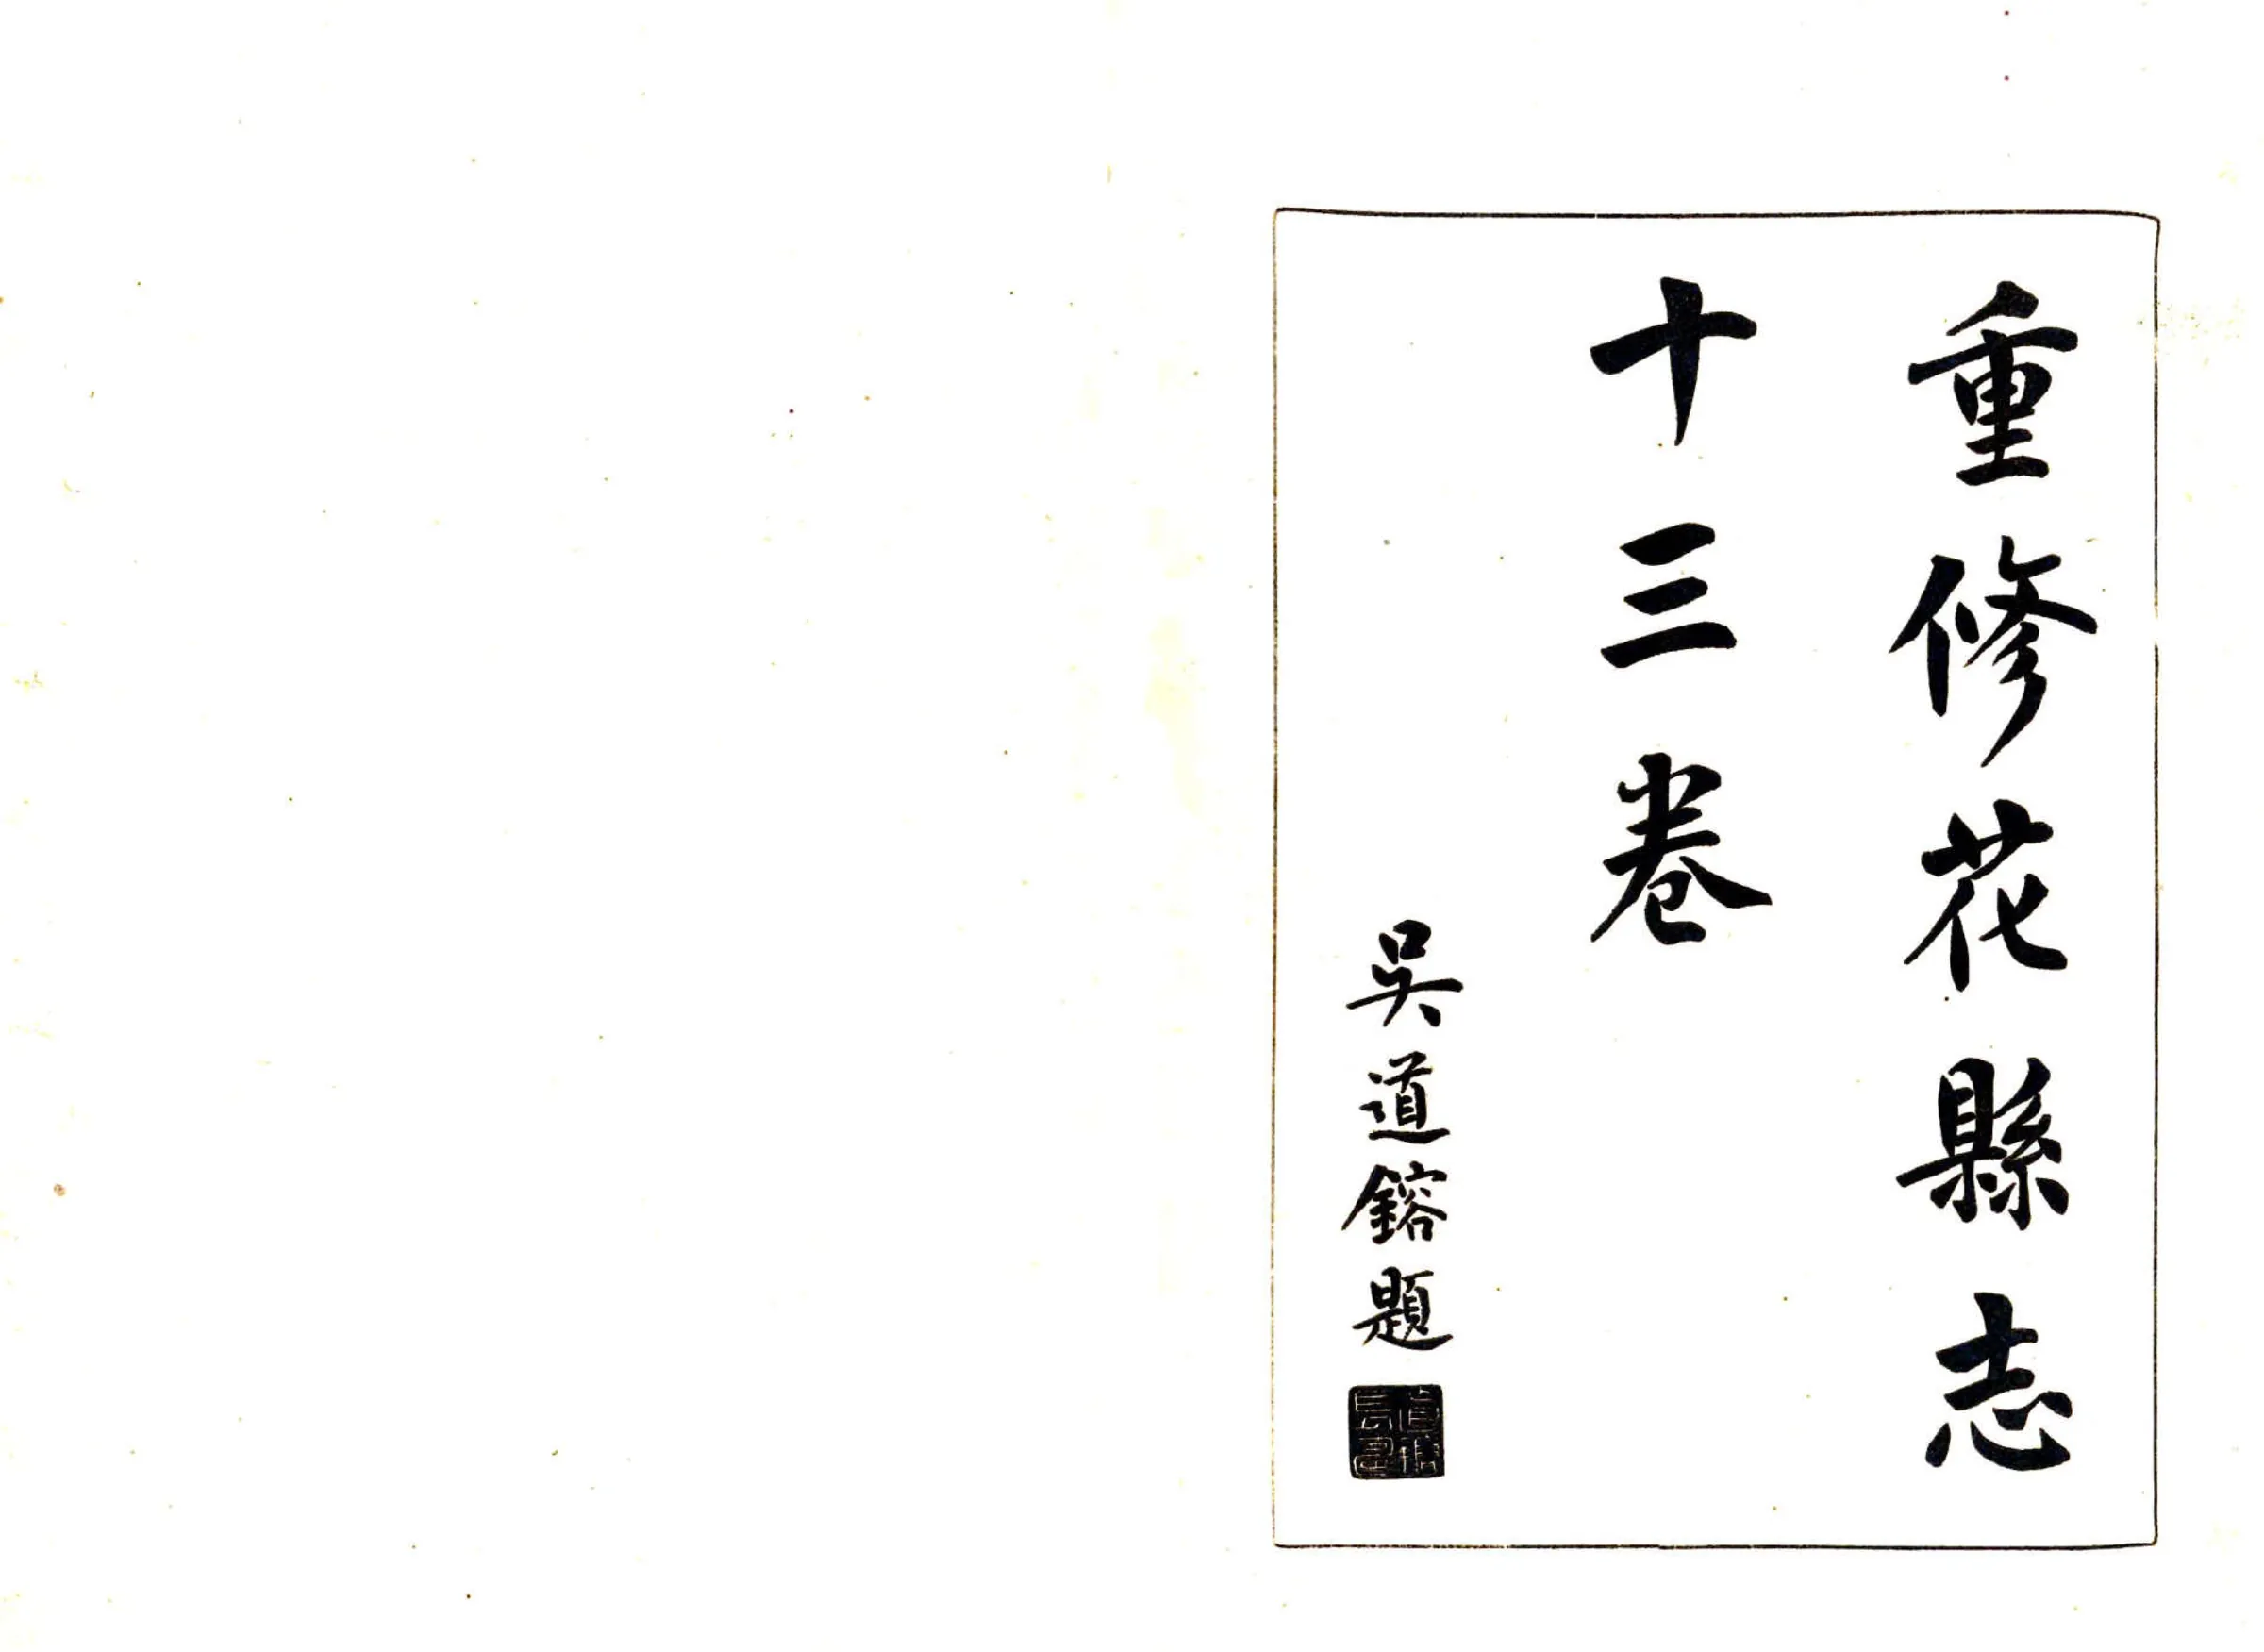 重修花縣志
十三卷
吳道鎔題